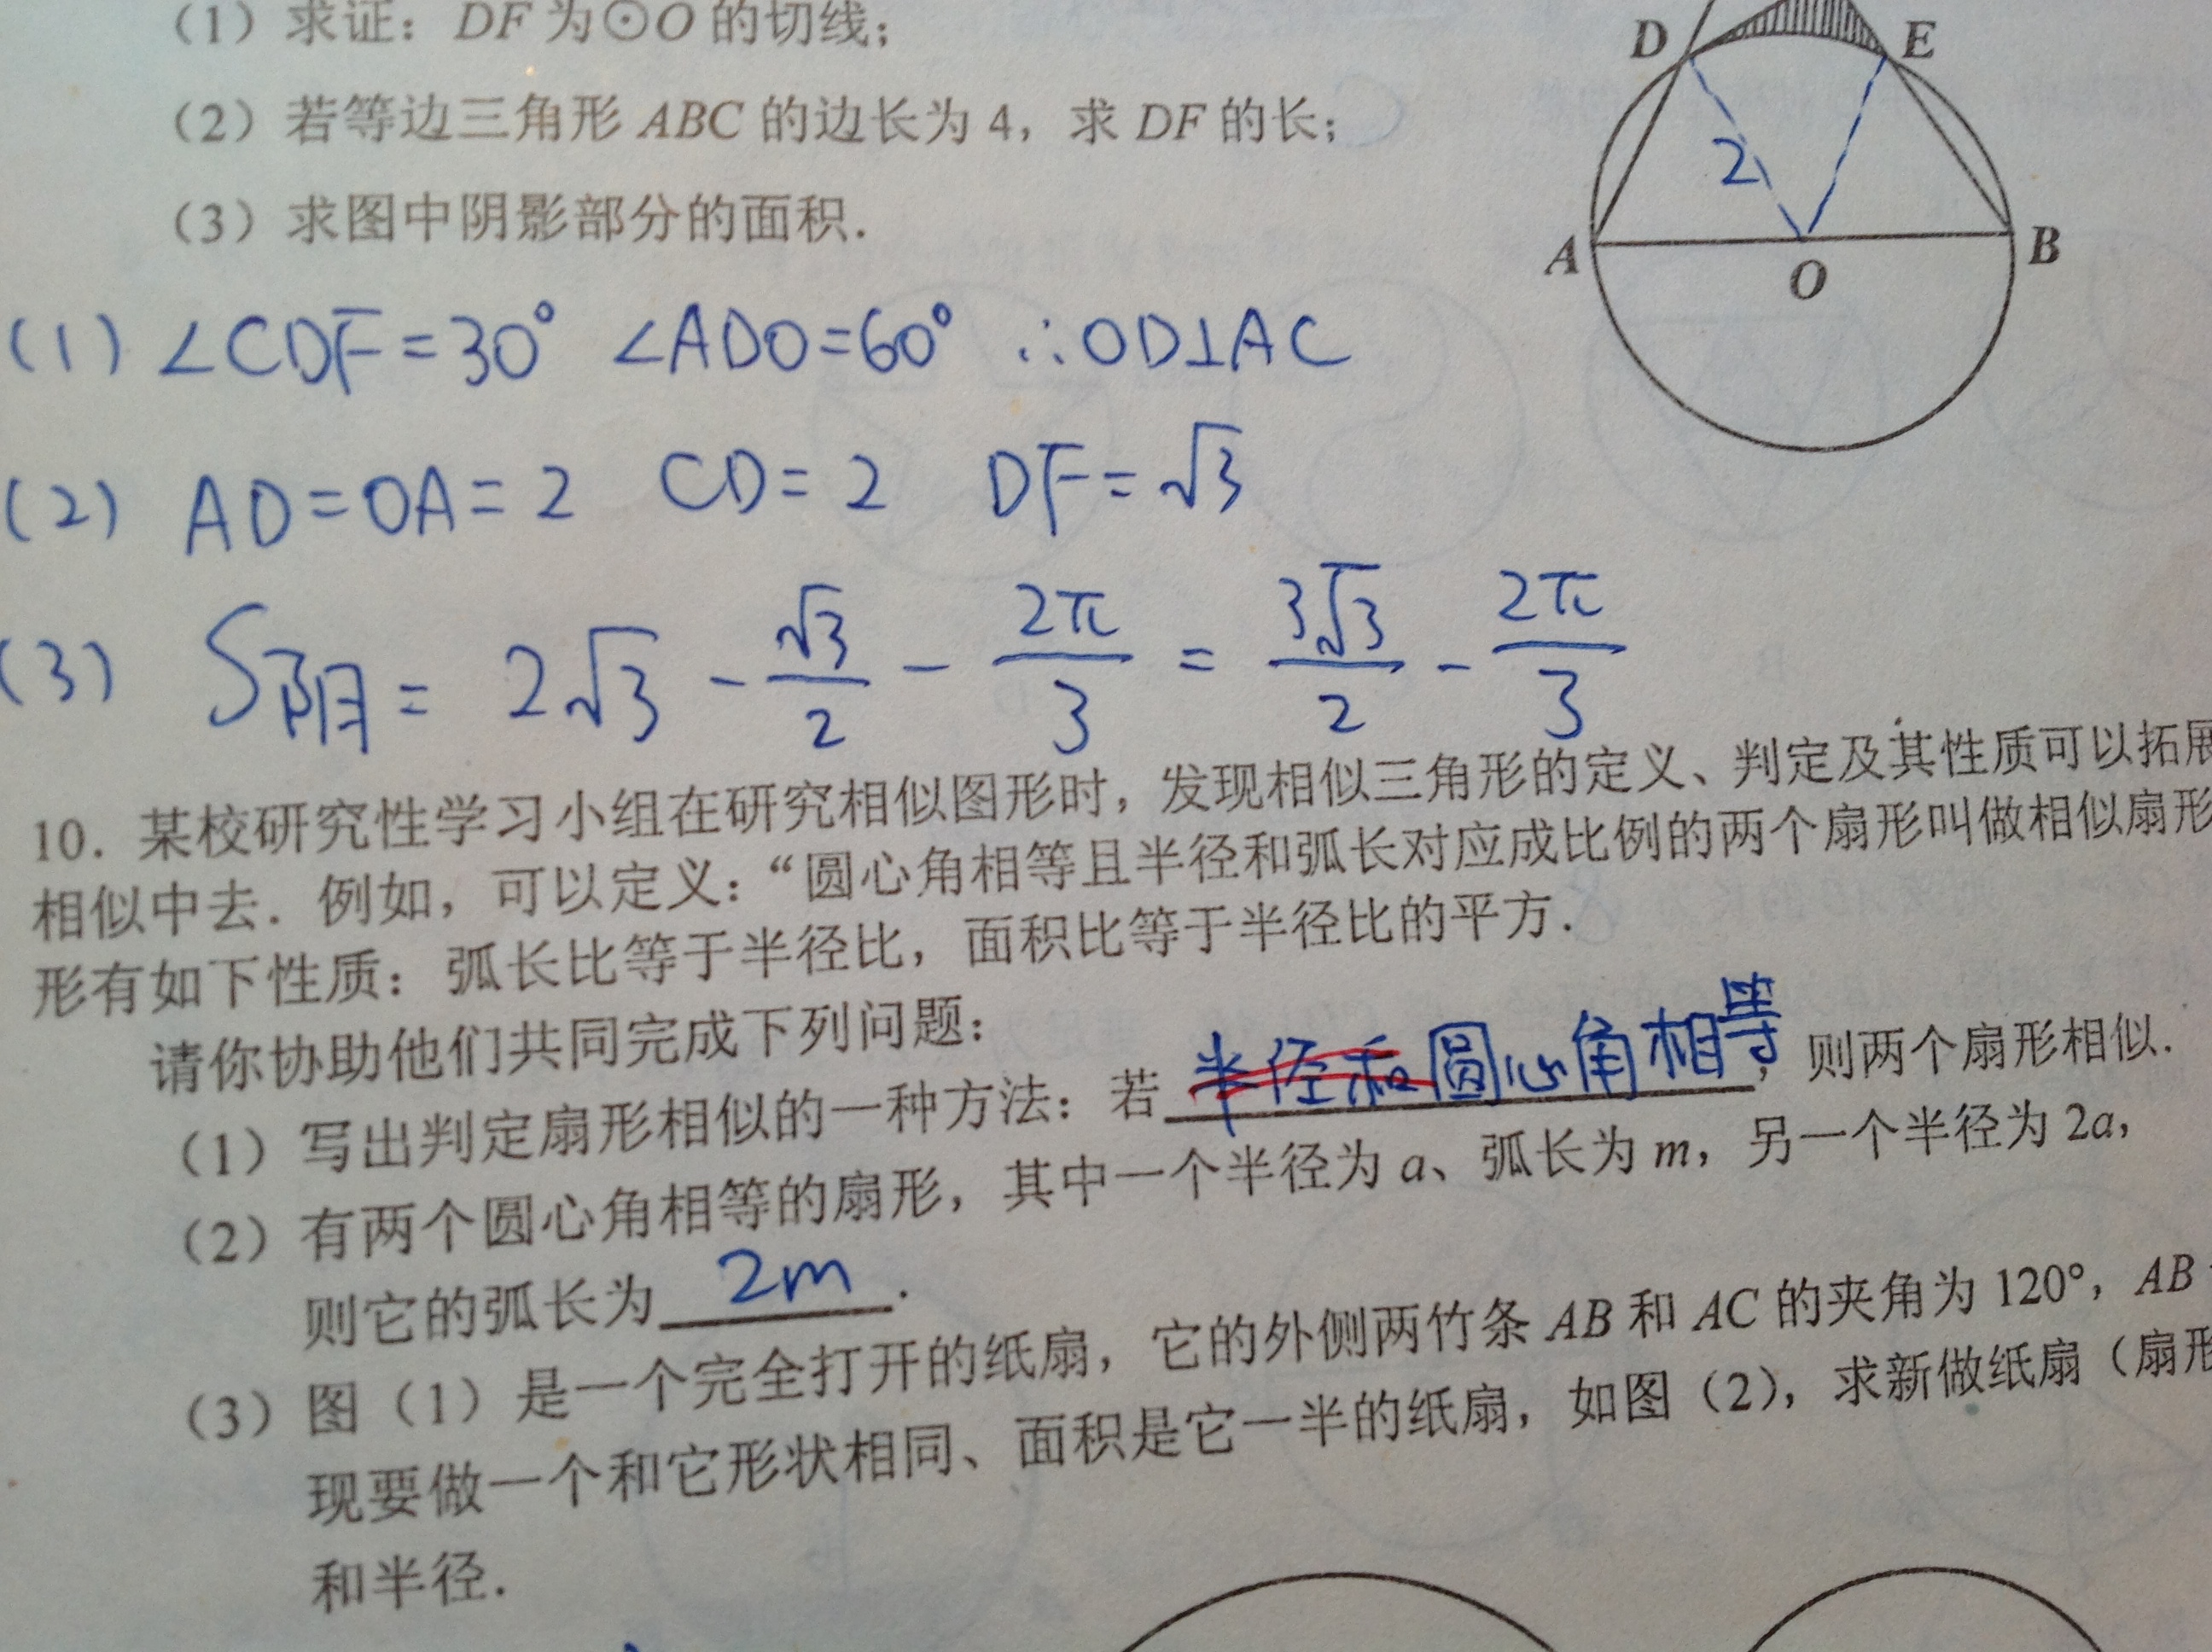 (1) 求证: DF 为⊙O 的切线;
(2) 若等边三角形 ABC 的边长为 4, 求 DF 的长;
(3) 求图中阴影部分的面积.
D E
2
A O B
(1) ∠CDF=30° ∠ADO=60° ∴OD⊥AC
(2) AD=OA=2 CD=2 DF=√3
(3) S阴=2√3-√3/2-2π/3=3√3/2-2π/3
10. 某校研究性学习小组在研究相似图形时, 发现相似三角形的定义、判定及其性质可以拓展
相似中去. 例如, 可以定义: “圆心角相等且半径和弧长对应成比例的两个扇形叫做相似扇形
形有如下性质: 弧长比等于半径比, 面积比等于半径比的平方.
请你协助他们共同完成下列问题:
(1) 写出判定扇形相似的一种方法: 若 半径和圆心角相等, 则两个扇形相似.
(2) 有两个圆心角相等的扇形, 其中一个半径为 a、弧长为 m, 另一个半径为 2a,
则它的弧长为 2m.
(3) 图 (1) 是一个完全打开的纸扇, 它的外侧两竹条 AB 和 AC 的夹角为 120°, AB
现要做一个和它形状相同、面积是它一半的纸扇, 如图 (2), 求新做纸扇 (扇形
和半径.